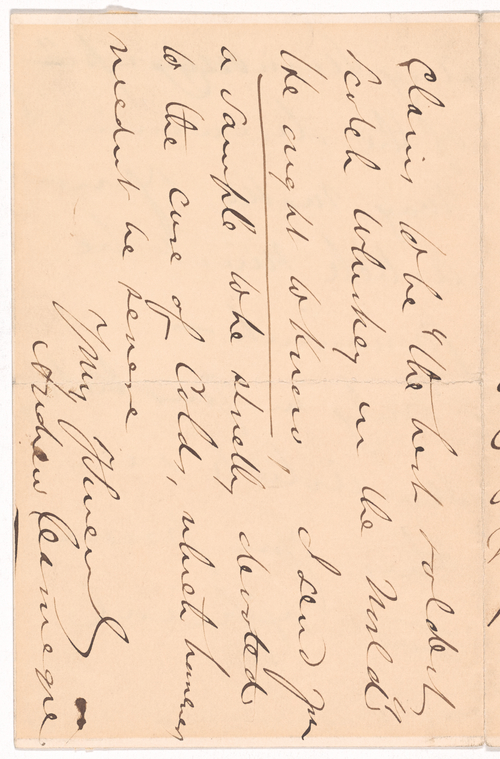 claims to be "the best & oldest
Scotch Whiskey in the World"
He ought to know, I send you
a sample to be strictly devoted
to the cure of Colds, which however
needn't be severe
Yours
Andrew Carnegie.